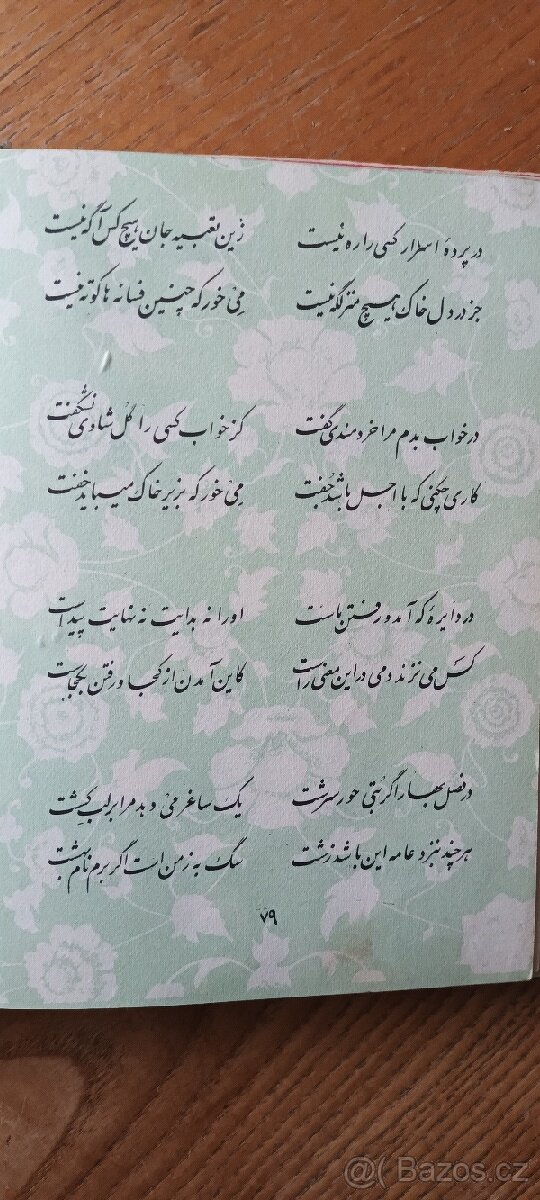 در پردهٔ اسرار کسی را ره نیست زین تعبیه جان هیچ کس آگه نیست
جز در دل خاک هیچ منزلگه نیست می خور که چنین فسانه ها کوته نیست
در خواب بدم مرا خردمندی گفت کز خواب کسی را گل شادی نشکفت
کاری چکنی که با اجل باشد جفت می خور که بزیر خاک میباید خفت
در دایرهٔ که آمد و رفتن ماست او را نه بدایت نه نهایت پیداست
کس می نزند دمی در این معنی راست کاین آمدن از کجا و رفتن بکجاست
در فصل بهار اگر بتی حور سرشت یک ساغر می دهد مرا بر لب کشت
هر چند بنزد عامه این باشد زشت سگ به ز من است اگر برم نام بهشت
۷۹
@ Bazos.cz